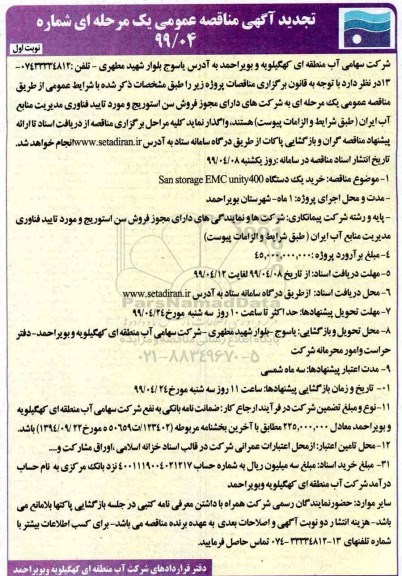 تجدید آگهی مناقصه عمومی یک مرحله ای شماره
۹۹/۰۴
نوبت اول
شرکت سهامی آب منطقه ای کهگیلویه و بویراحمد به آدرس یاسوج بلوار شهید مطهری - تلفن :۰۷۴۳۳۳۳۴۸۱۲-
۱۳در نظر دارد با توجه به قانون برگزاری مناقصات پروژه زیر را طبق مشخصات ذکر شده با شرایط عمومی از طریق
مناقصه عمومی یک مرحله ای به شرکت های دارای مجوز فروش سن استوریج و مورد تایید فناوری مدیریت منابع
آب ایران (طبق شرایط و الزامات پیوست) هستند، واگذار نماید کلیه مراحل برگزاری مناقصه از دریافت اسناد تا ارائه
پیشنهاد مناقصه گران و بازگشایی پاکات از طریق درگاه سامانه ستاد به آدرس www.setadiran.irانجام خواهد شد.
تاریخ انتشار اسناد مناقصه در سامانه :روز یکشنبه ۹۹/۰۴/۰۸
۱-موضوع مناقصه: خرید یک دستگاه San storage EMC unity400
-مدت و محل اجرای پروژه: ۱ ماه- شهرستان بویراحمد
- پایه و رشته شرکت پیمانکاری: شرکت ها و نمایندگی های دارای مجوز فروش سن استوریج و مورد تایید فناوری
مدیریت منابع آب ایران (طبق شرایط و الزامات پیوست)
۴-مبلغ برآورد پروژه :۴۵,۰۰۰,۰۰۰,۰۰۰
۵-مهلت دریافت اسناد: از تاریخ ۹۹/۰۴/۰۸ لغایت ۹۹/۰۴/۱۲
۶-محل دریافت اسناد: ازطریق درگاه سامانه ستاد به آدرس www.setadiran.ir
۷-مهلت تحویل پیشنهادها: حداکثر تا ساعت ۱۰ روز سه شنبه مورخ۹۹/۰۴/۲۴
۸-محل تحویل وبازگشایی: یاسوج -بلوار شهید مطهری -شرکت سهامی آب منطقه ای کهگیلویه و بویراحمد-دفتر
حراست وامور محرمانه شرکت
-مدت اعتبار پیشنهادها: سه ماه شمسی
۰۱- تاریخ و زمان بازگشایی پیشنهادها: ساعت ۱۱ روز سه شنبه مورخ۹۹/۰۴/۲۴
۱۱-نوع و مبلغ تضمین شرکت در فرآیند ارجاع کار: ضمانت نامه بانکی به نفع شرکت سهامی آب منطقه ای کهگیلویه
و بویراحمد معادل ۲۲۵,۰۰۰,۰۰۰ مطابق با آخرین بخشنامه مربوطه (۱۲۳۴۰۲/ت۵۰۶۵۹ ه مورخ۱۳۹۴/۰۹/۲۲) باشد.
۱۲-محل تامین اعتبار: ازمحل اعتبارات عمرانی شرکت در قالب اسناد خزانه اسلامی ،اوراق مشارکت و....
۳۱- مبلغ خرید اسناد: مبلغ سه میلیون ریال به شماره حساب ۴۰۰۱۱۱۹۰۰۴۰۲۱۲۱۷ نزد بانک مرکزی به نام حساب
درآمد شرکت آب منطقه ای کهگیلویه وبویراحمد
سایر موارد: حضور نمایندگان رسمی شرکت همراه با داشتن معرفی نامه کتبی در جلسه بازگشایی پاکتها بلامانع می
باشد-هزینه انتشار دو نوبت آگهی و اصلاحات بعدی به عهده برنده مناقصه می باشد- برای کسب اطلاعات بیشتر با
شماره تلفنهای ۱۳-۳۳۳۳۴۸۱۲-۰۷۴ تماس حاصل فرمایید.
دفتر قراردادهای شرکت آب منطقه ای کهگیلویه وبویراحمد
ParsNamadData
۰۲۱-۸۸۳۴۹۶۷۰-۵